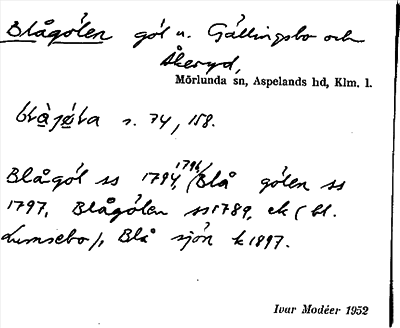 Blågölen göl u. Gällingsbo och
Åkeryd,
Mörlunda sn, Aspelands hd, Klm. l.
s. 74, 158.
Blågöl ss 1794, 1796, Blå gölen ss
1797, Blågölen ss 1789, ek (bl.
Lumsebo), Blå sjön k 1897.
Ivar Modéer 1952